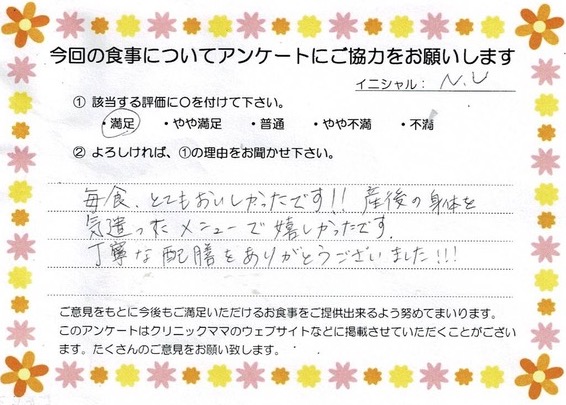 今回の食事についてアンケートにご協力をお願いします
イニシャル： N.U
① 該当する評価に〇を付けて下さい。
・満足 ・やや満足 ・普通 ・やや不満 ・不満
② よろしければ、①の理由をお聞かせ下さい。
毎食、とてもおいしかったです!! 産後の身体を
気遣ったメニューで嬉しかったです.
丁寧な配膳をありがとうございました!!!
ご意見をもとに今後もご満足いただけるお食事をご提供出来るよう努めてまいります。
このアンケートはクリニックママのウェブサイトなどに掲載させていただくことがござい
ます。たくさんのご意見をお願い致します。